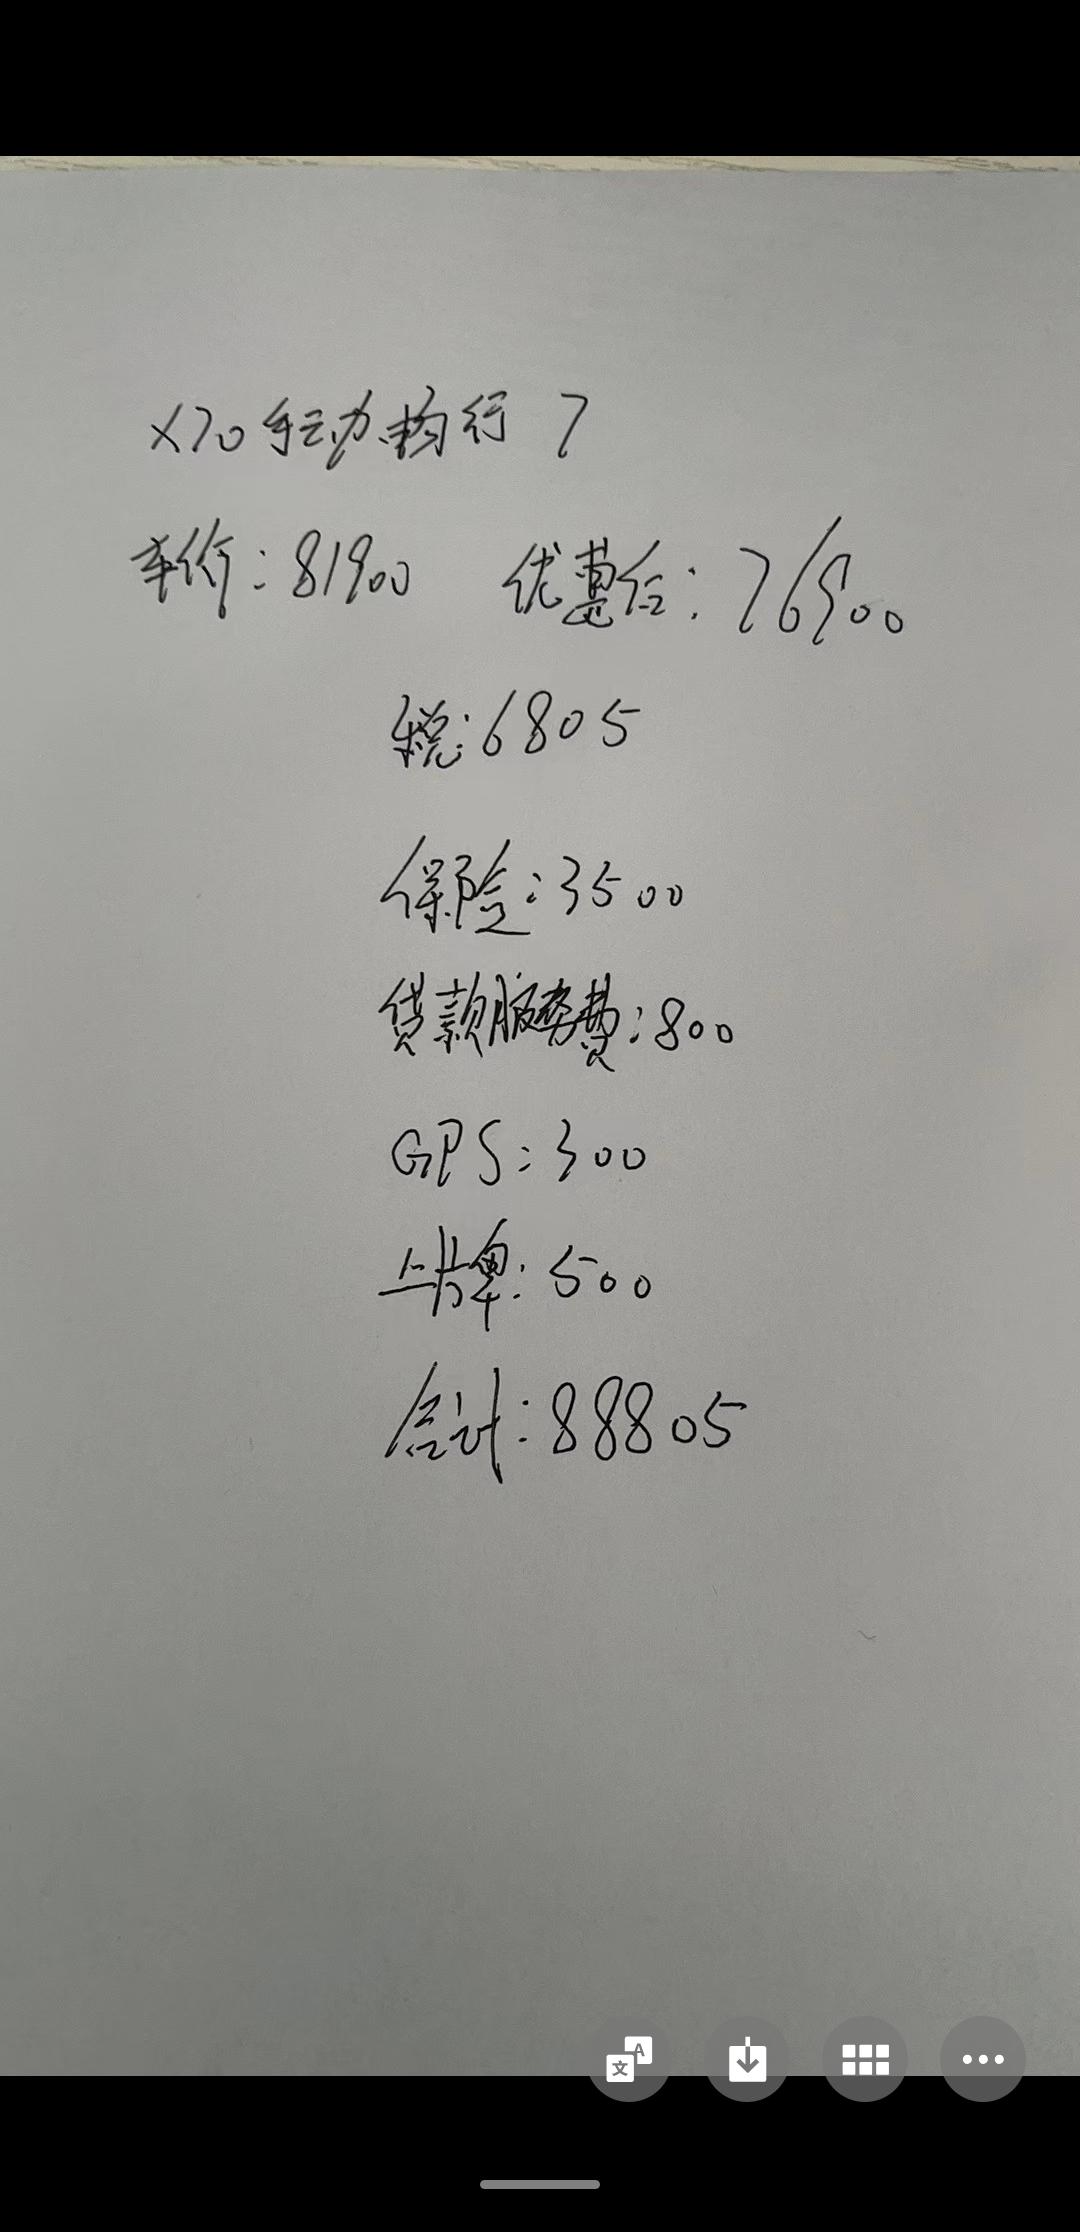 X70 手动畅行 7
车价:81900 优惠后:76900
税:6805
保险:3500
贷款服务费:800
GPS:300
上牌:500
合计:88805